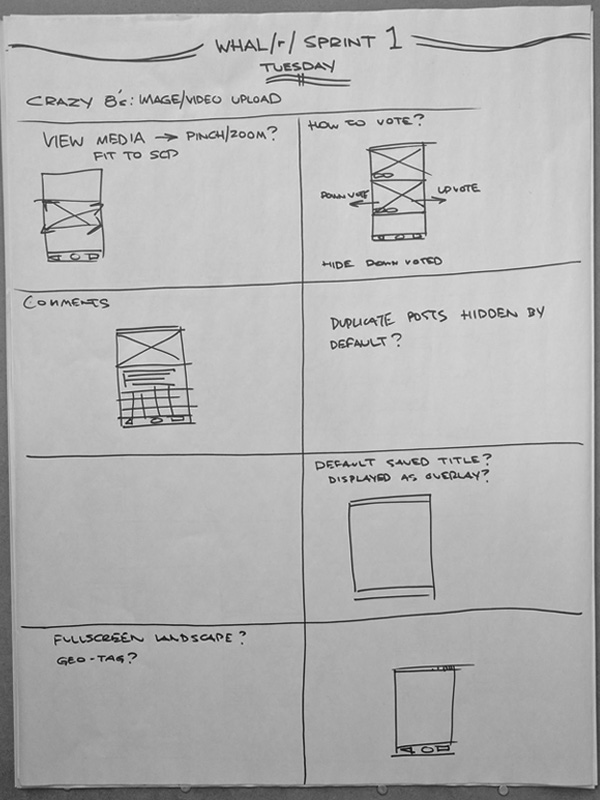 WHAL/r/ SPRINT 1
TUESDAY
CRAZY 8's: IMAGE/VIDEO UPLOAD
VIEW MEDIA → PINCH/ZOOM?
FIT TO SCD
HOW TO VOTE?
DOWNVOTE
UPVOTE
HIDE DOWN VOTED
COMMENTS
DUPLICATE POSTS HIDDEN BY
DEFAULT?
DEFAULT SAVED TITLE?
DISPLAYED AS OVERLAY?
FULLSCREEN LANDSCAPE?
GEO-TAG?